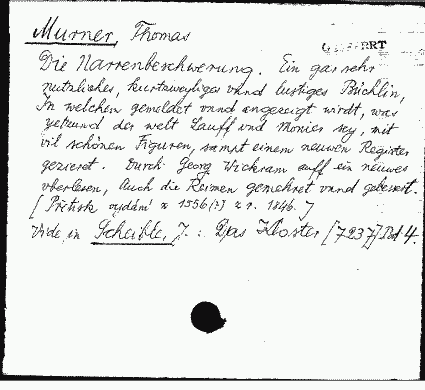 Murner, Thomas
Die Narrenbeschwerung. Ein gar sehr
nutzliches, kurtzweyliges vnnd lustiges Büchlin,
In welchen gemeldet vnnd angezeigt wirdt, was
yetzund der welt Lauff vnd Monier sey, mit
vil schönen Figuren, sampt einem neuwen Register
gezieret. Durch Georg Wickram auff ein neuwes
vberlesen, Auch die Reimen gemehret vnnd gebessert.
[Přetisk vydání z 1556(?) z r. 1846.]
Vide in Scheible, J.: Das Kloster [7237] Bd 4.